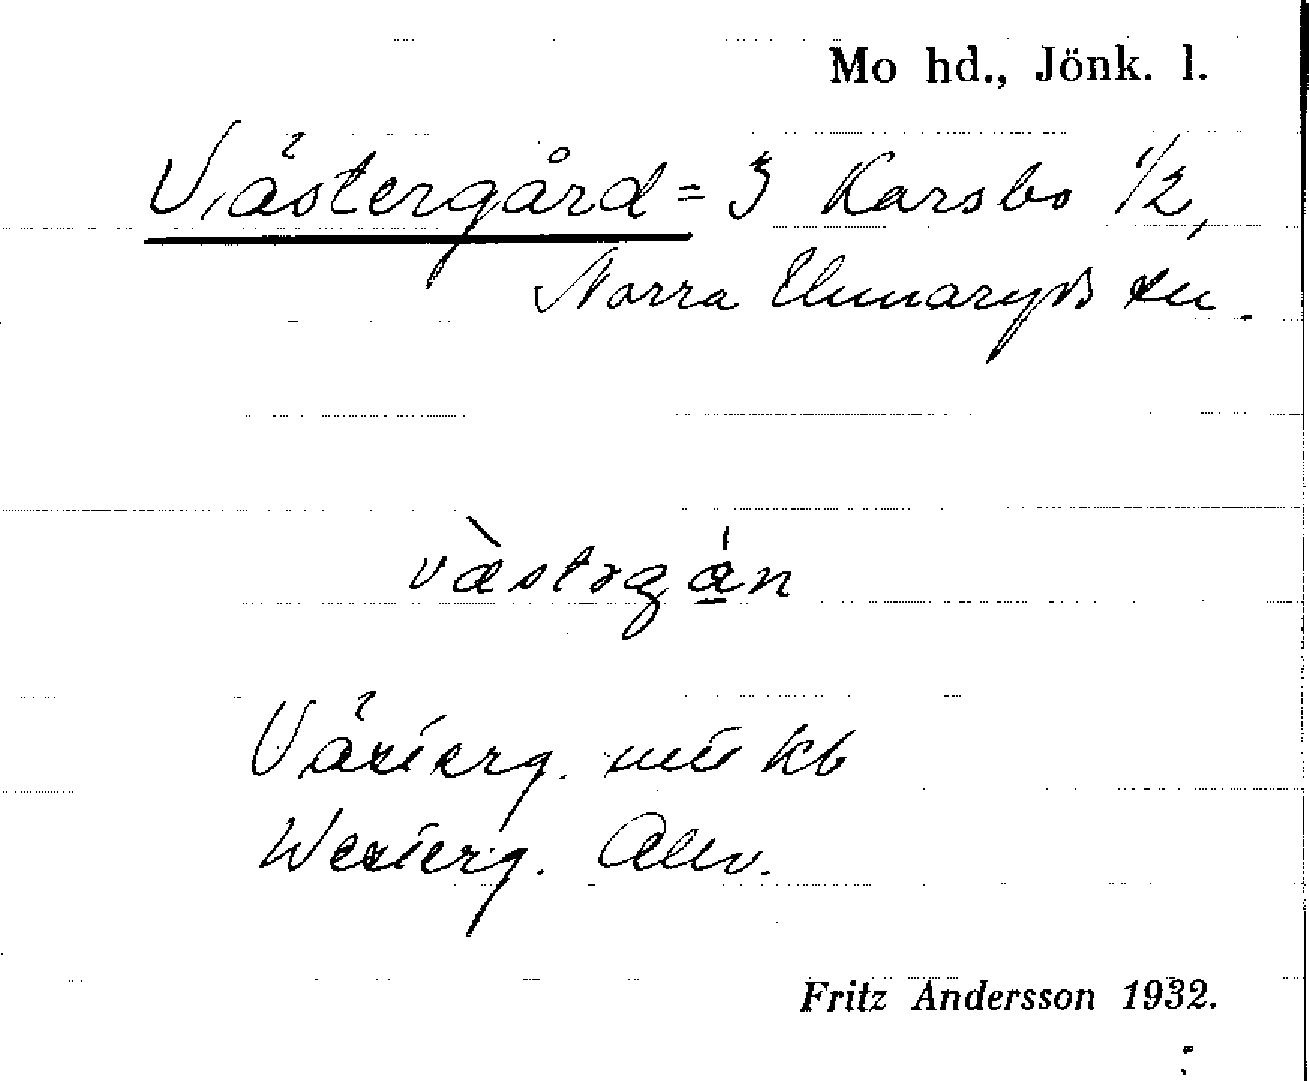 Mo hd., Jönk. l.
Västergård = 3 Karsbo 1/2,
Norra Unnaryds sn.
vàstrgán
Västerg. kb
Westerg.
Fritz Andersson 1932.